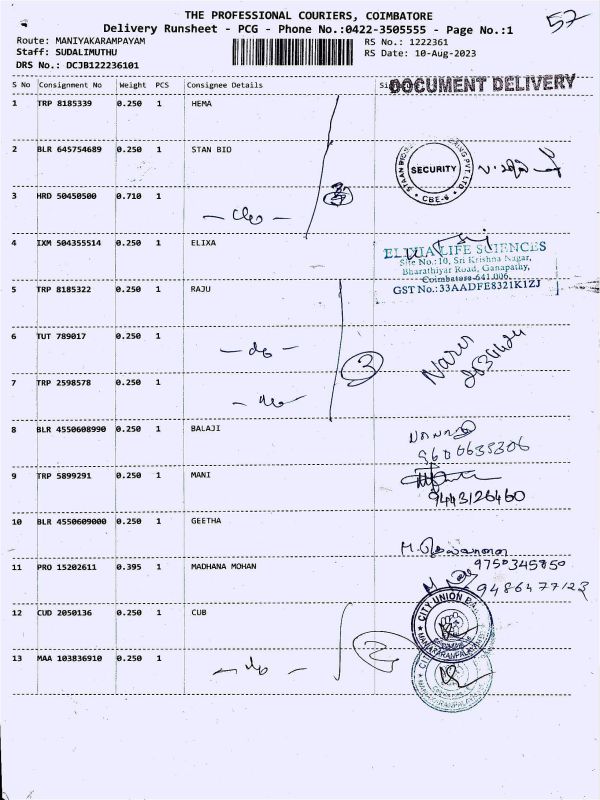 THE PROFESSIONAL COURIERS, COIMBATORE
Delivery Runsheet - PCG - Phone No.:0422-3505555 - Page No.:1
52
Route: MANIYAKARAMPAYAM
RS No.: 1222361
Staff: SUDALIMUTHU
RS Date: 10-Aug-2023
DRS No.: DCJB122236101
S No Consignment No Weight PCS Consignee Details
DOCUMENT DELIVERY
1 TRP 8185339 0.250 1 HEMA
2 BLR 645754689 0.250 1 STAN BIO
SECURITY
CBE-6
3 HRD 50450500 0.710 1
4 IXM 504355514 0.250 1 ELIXA
LIFE SCIENCES
Site No.: 10, Sri Krishna Nagar,
Bharathiyar Road, Ganapathy,
Coimbatore-641 006.
GST No.:33AADFE8321K1ZJ
5 TRP 8185322 0.250 1 RAJU
6 TUT 789017 0.250 1
- do -
3
7 TRP 2598578 0.250 1
- do -
8 BLR 4550608990 0.250 1 BALAJI
9600635306
9 TRP 5899291 0.250 1 MANI
9443126460
10 BLR 4550609000 0.250 1 GEETHA
11 PRO 15202611 0.395 1 MADHANA MOHAN
9750345850
9486477123
12 CUD 2050136 0.250 1 CUB
CITY UNION
13 MAA 103836910 0.250 1
- do -
2